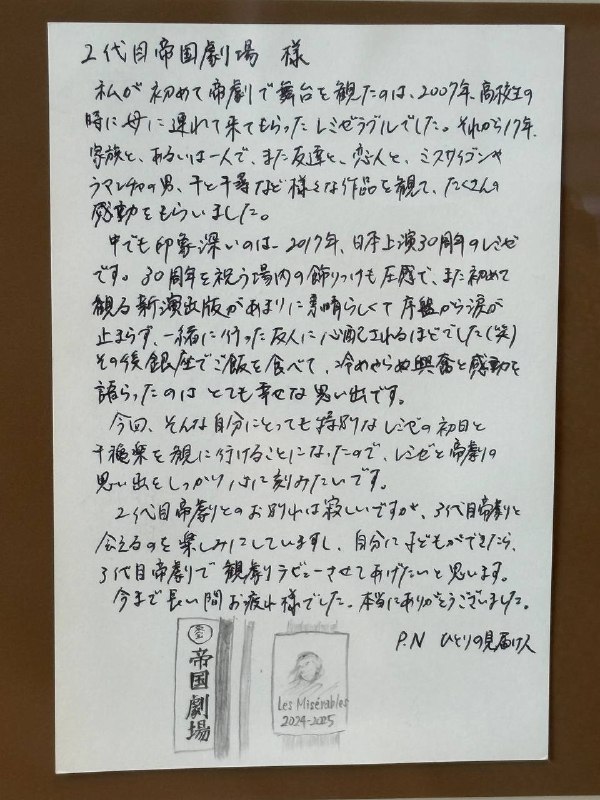 2代目帝国劇場 様
私が初めて帝劇で舞台を観たのは、2007年、高校生の
時に母に連れて来てもらったレミゼラブルでした。それから17年、
家族と、あるいは一人で、また友達と、恋人と、ミスサイゴンや
ラマンチャの男、千と千尋など様々な作品を観て、たくさんの
感動をもらいました。
中でも印象深いのは、2017年、日本上演30周年のレミゼ
です。30周年を祝う場内の飾りつけも圧感で、また初めて
観る新演出版があまりに素晴らしくて序盤から涙が
止まらず、一緒に行った友人に心配されるほどでした(笑)
その後銀座でご飯を食べて、冷めやらぬ興奮と感動を
語らったのはとても幸せな思い出です。
今回、そんな自分にとっても特別なレミゼの初日と
千穐楽を観に行けることになったので、レミゼと帝劇の
思い出をしっかり心に刻みたいです。
2代目帝劇とのお別れは寂しいですが、3代目帝劇と
会えるのを楽しみにしていますし、自分に子どもができたら、
3代目帝劇で観劇デビューさせてあげたいと思います。
今まで長い間お疲れ様でした。本当にありがとうございました。
P.N ひとりの見届け人
帝国劇場
Les Misérables
2024-2025